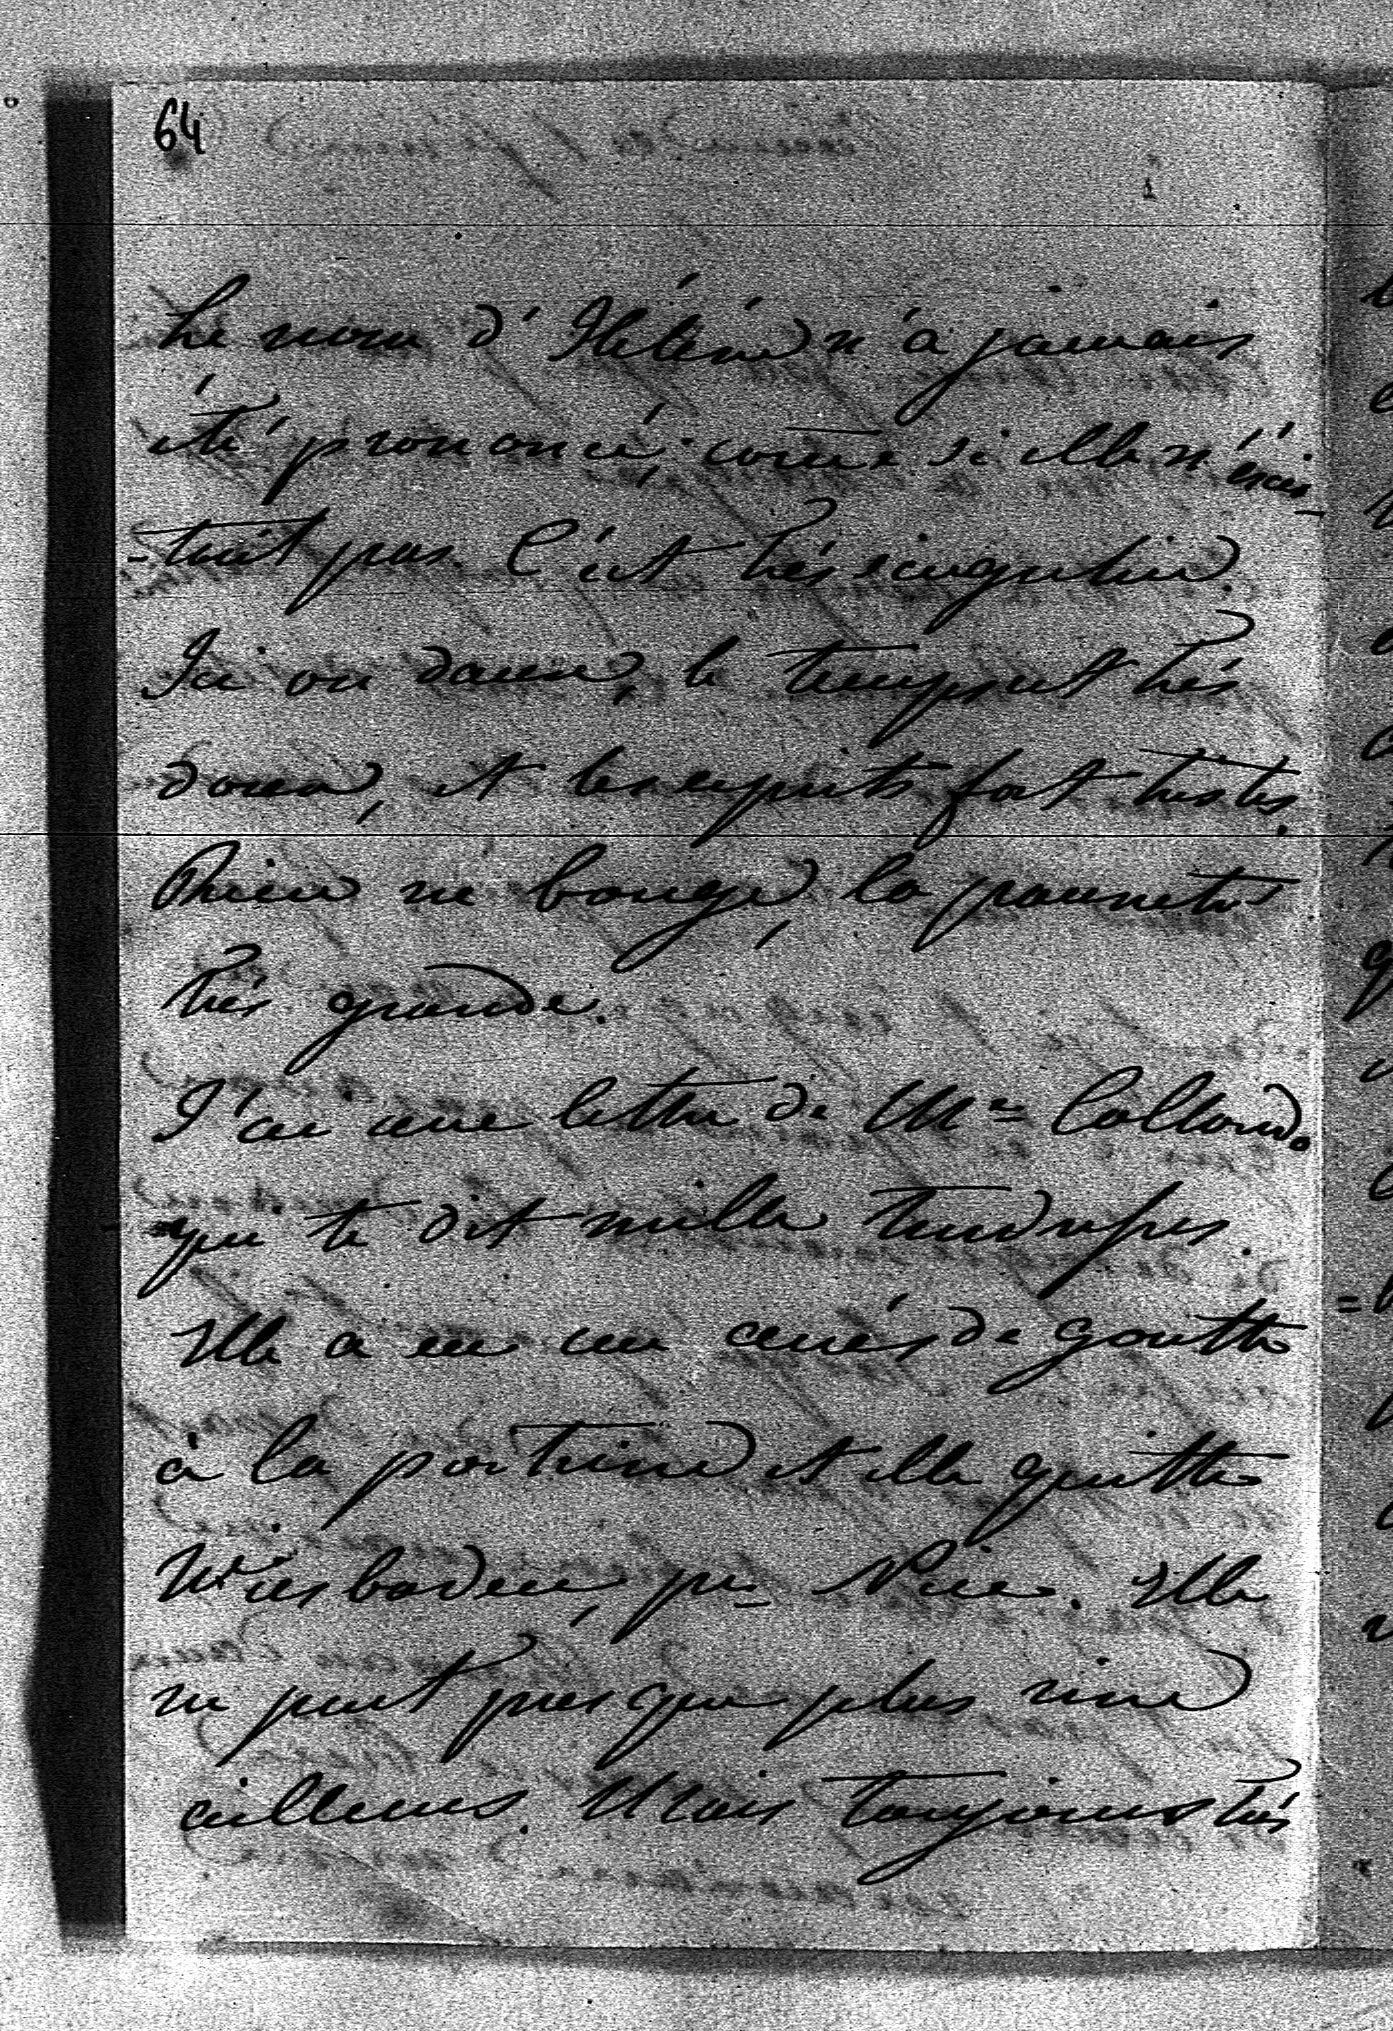 64
Le nom d'Hélène n'a jamais
été prononcé, come si elle n'éxis-
-tait pas. C'est très singulier.
Ici on danse, le temps est très
doux, et les esprits fort tristes.
Rien ne bouge, la pauvreté
très grande.
J'ai une lettre de Me
que te dit mille tendresses.
Elle a eu un accès de goutte
à la poitrine et elle quitte
Wiesbaden, pr Nice. Elle
ne peut presque plus
ailleurs. Mais toujours très